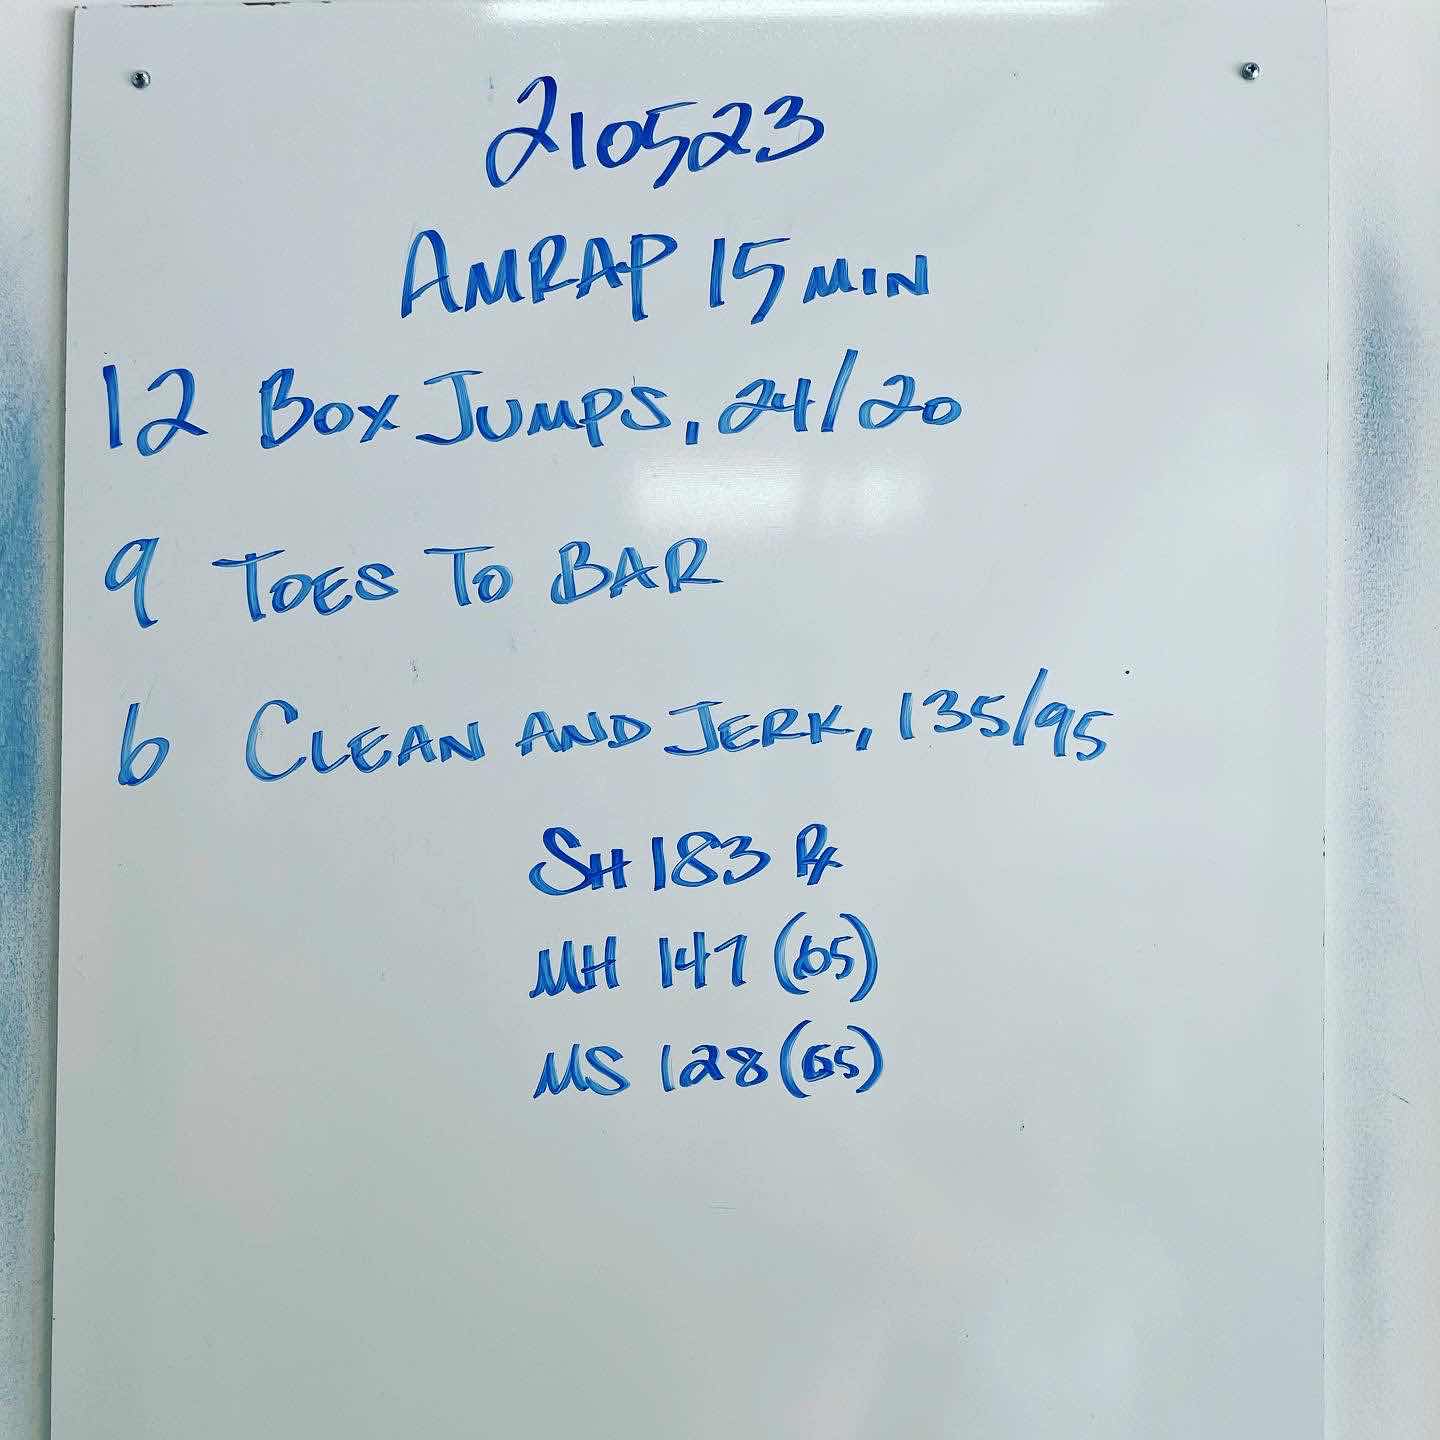 210523
AMRAP 15 MIN
12 BOX JUMPS, 24/20
9 TOES TO BAR
6 CLEAN AND JERK, 135/95
SH 183 Rx
MH 147 (65)
MS 128 (65)